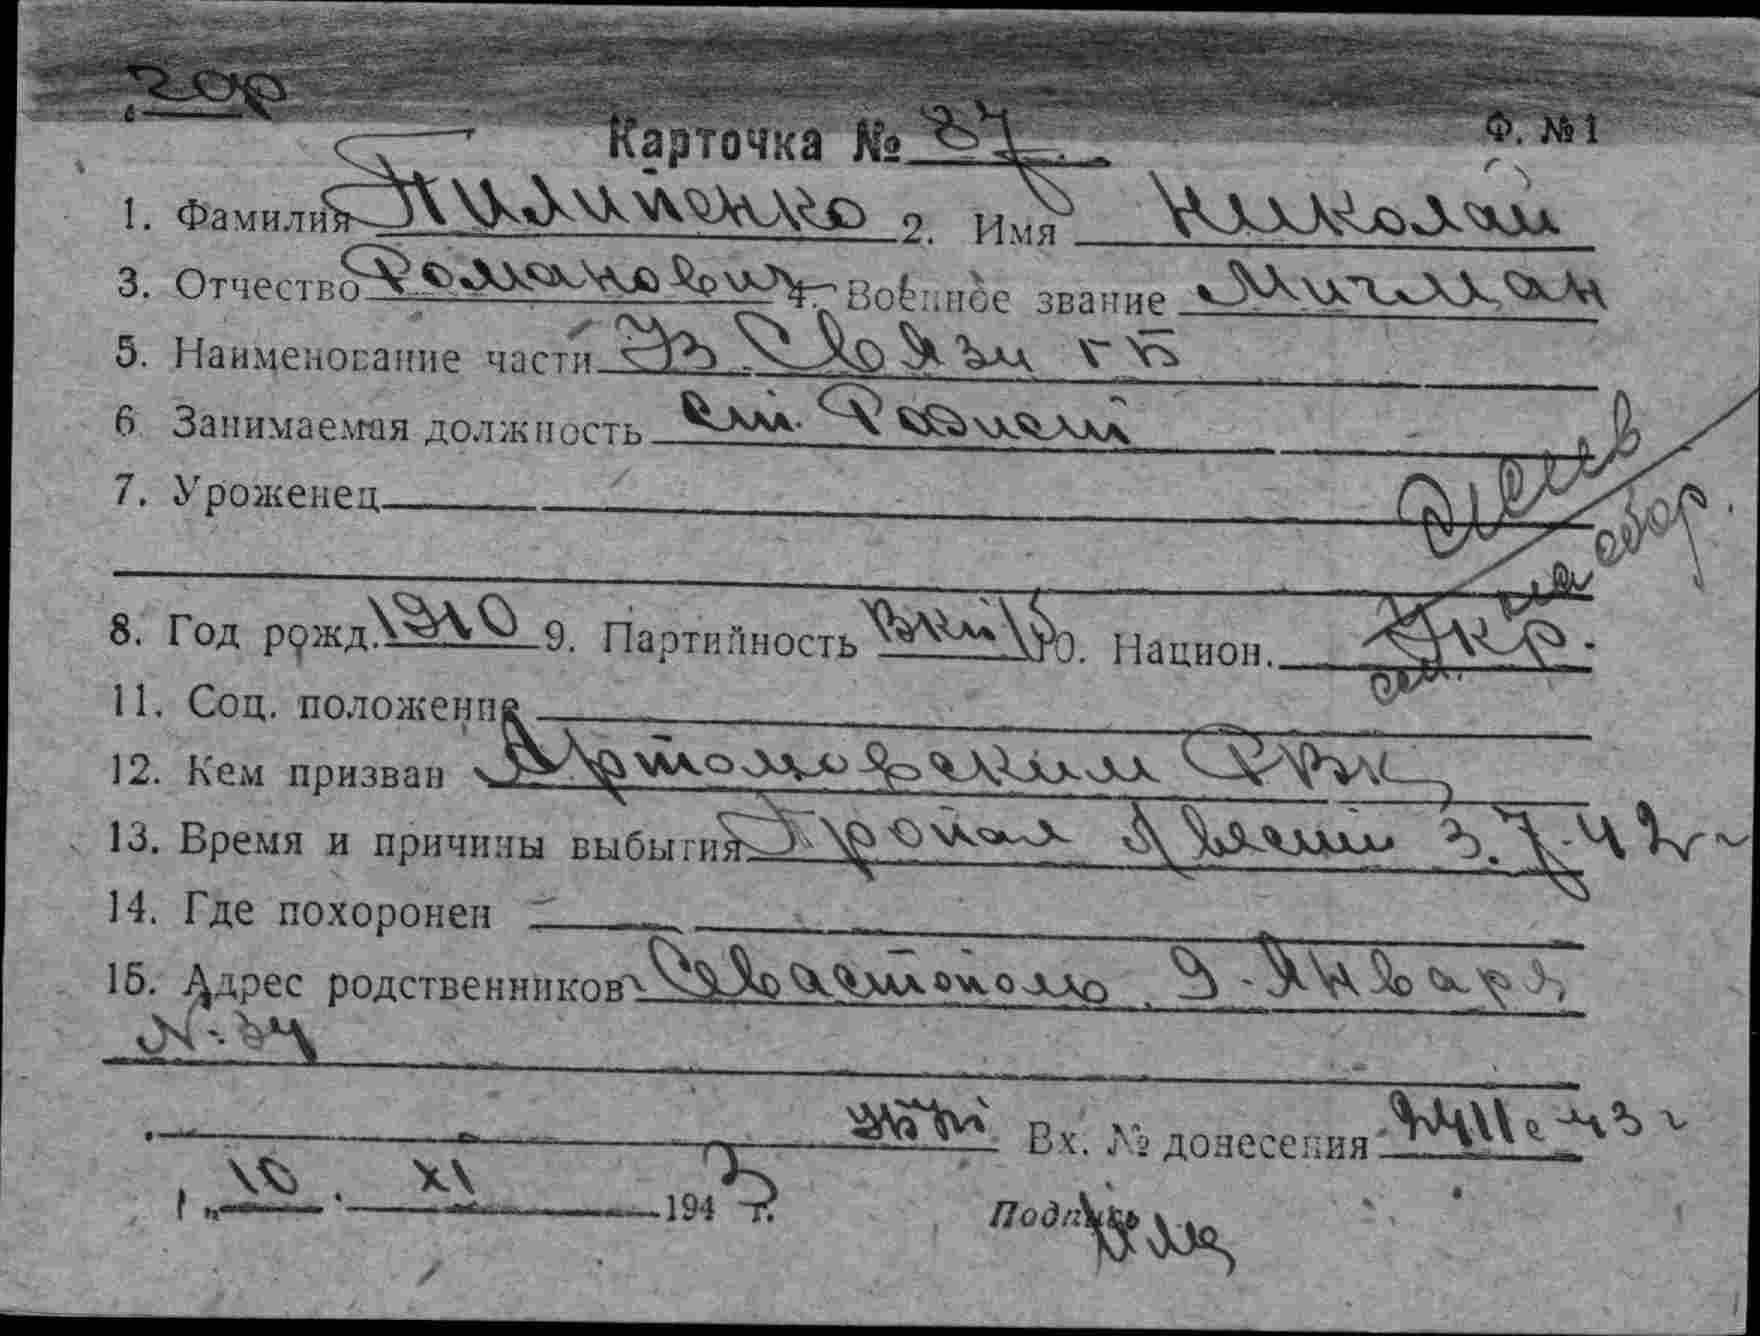 Карточка № 87 Ф. № 1
1. Фамилия Пилипенко 2. Имя Николай
3. Отчество Романович 4. Военное звание Мичман
5. Наименование части Уз. Связи ГБ
6 Занимаемая должность ст. Радист
7. Уроженец
8. Год рожд. 1910 9. Партийность ВКП/б 10. Национ. Укр.
11. Соц. положение
12. Кем призван Артомовским РВК
13. Время и причины выбытия Пропал Вести 3.7.42 г
14. Где похоронен
15. Адрес родственников Севастополь 9-Января
N. 34
Вх. № донесения 2411с 43 г
„10. XI 1943 г. Подпись